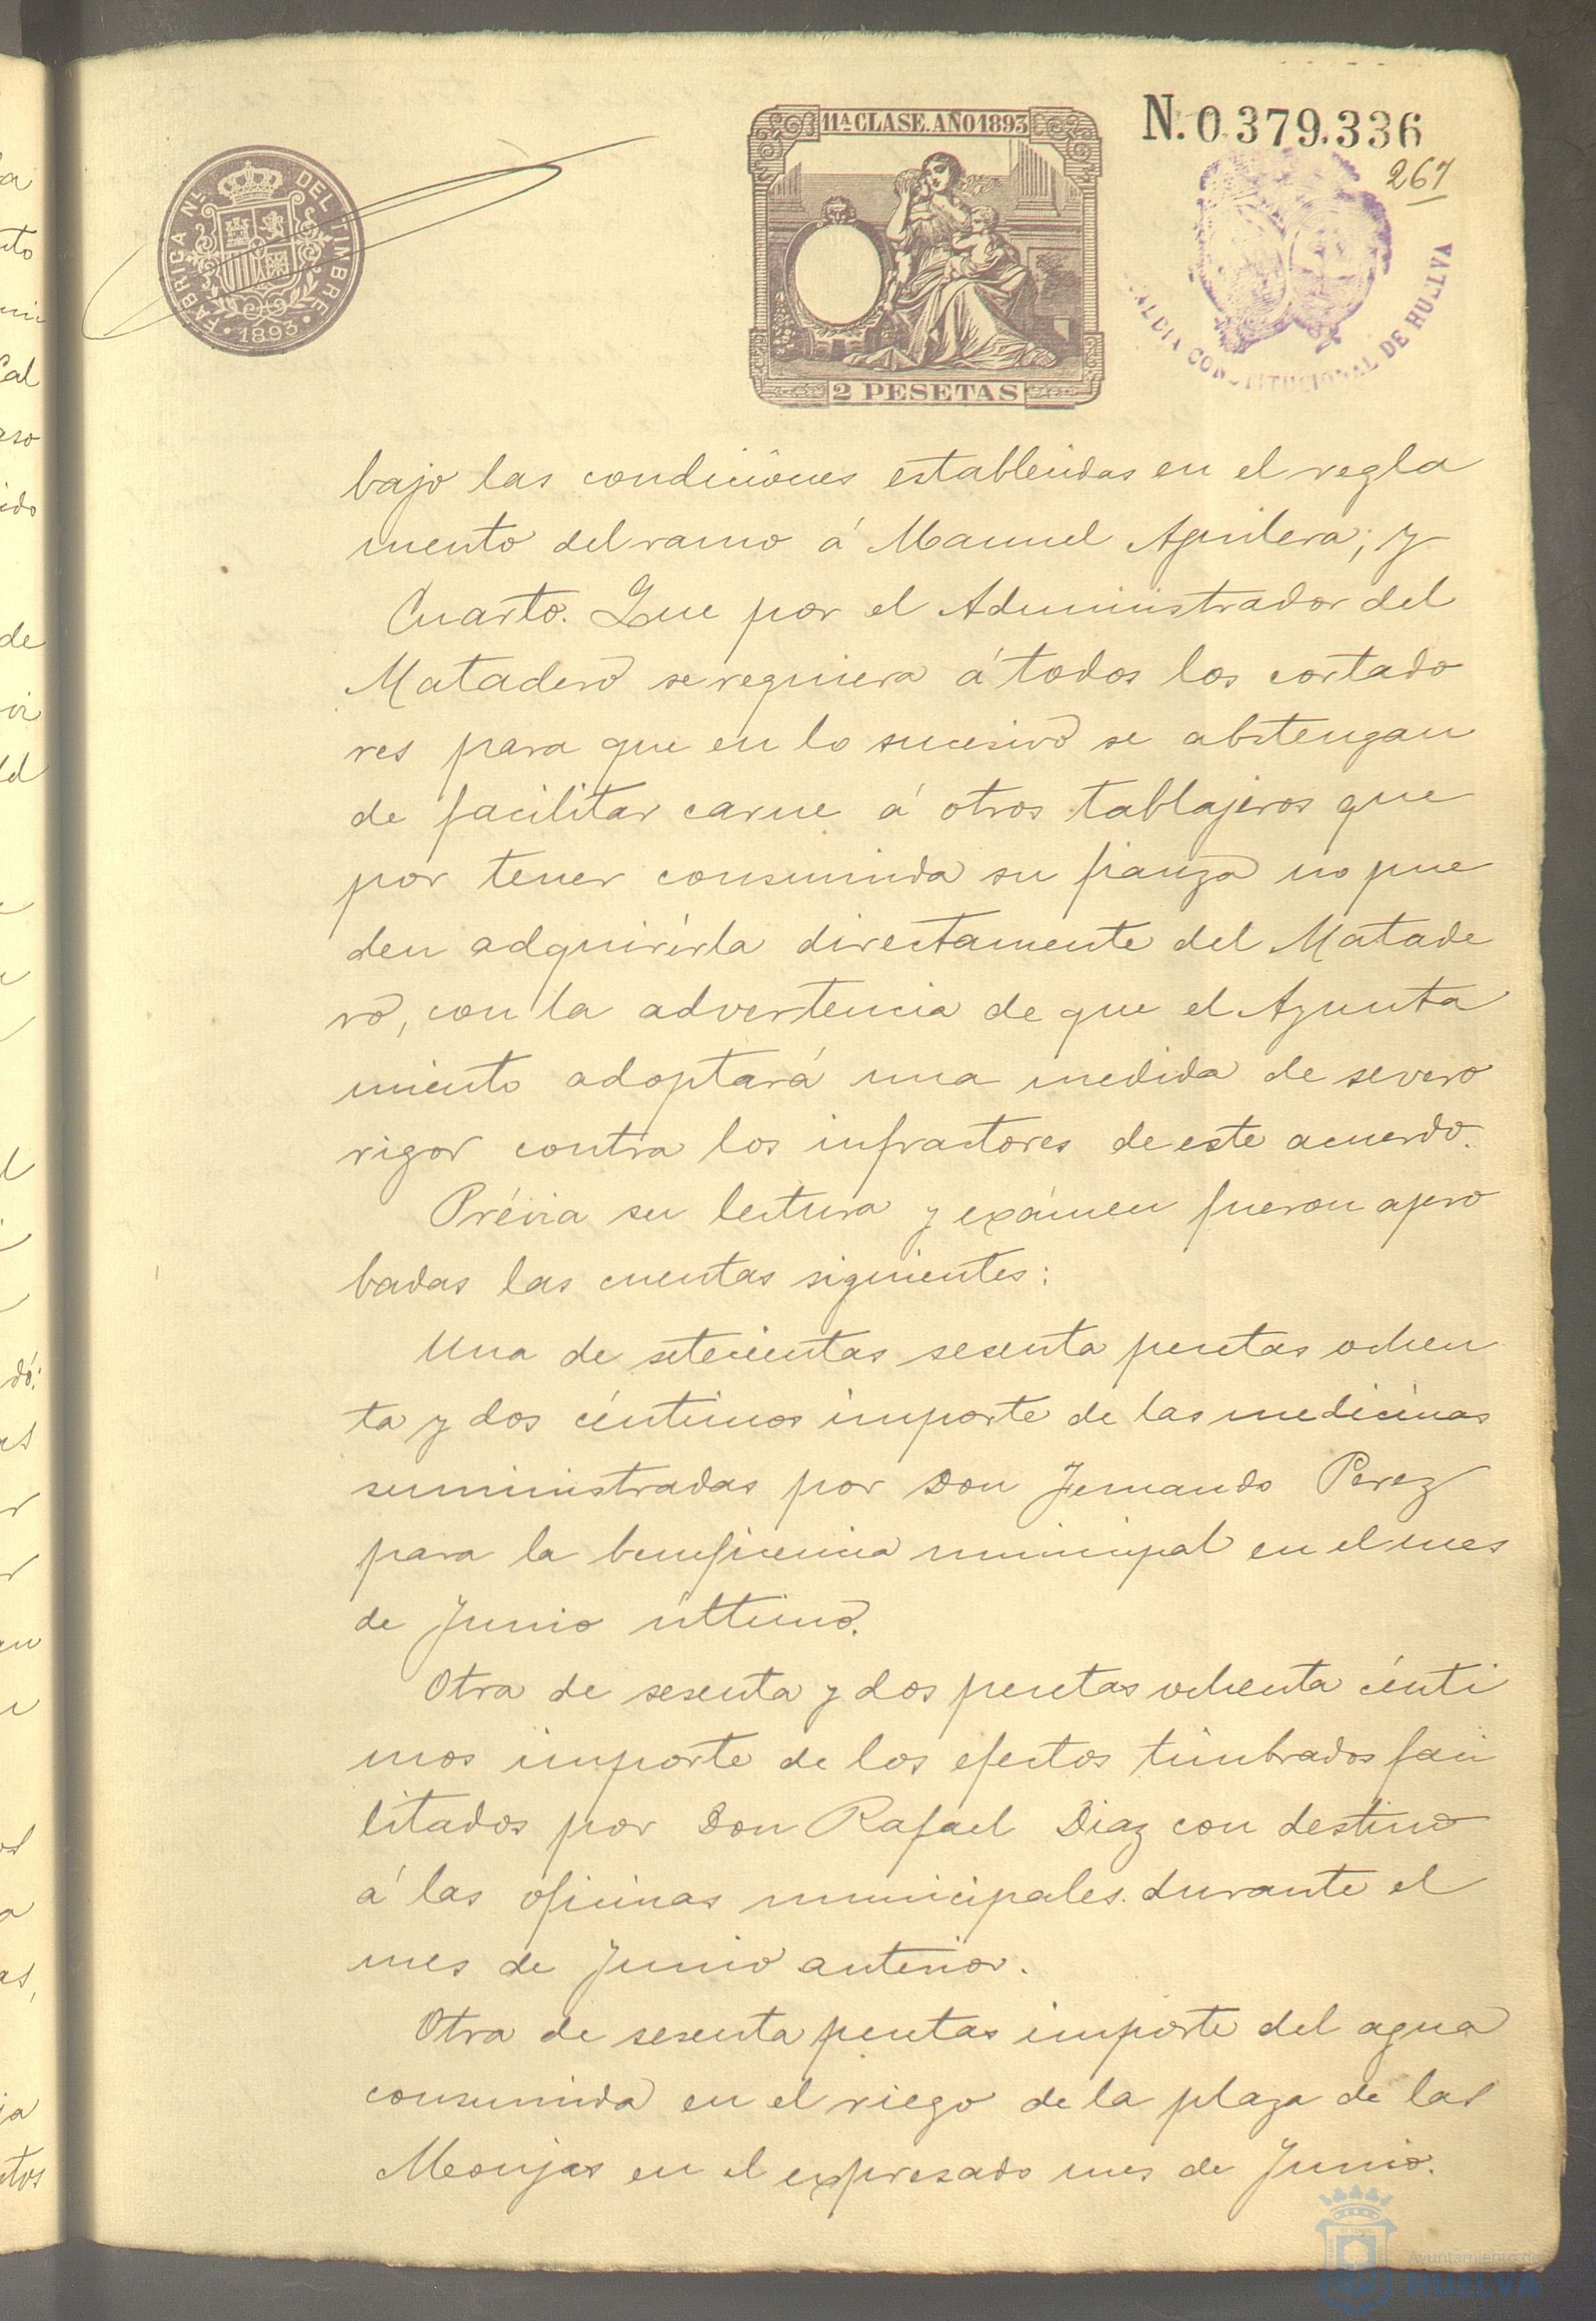 11ª CLASE. AÑO 1893
N. 0.379.336
267
FÁBRICA NL. DEL TIMBRE
1893
2 PESETAS
ALCALDIA CONSTITUCIONAL DE HUELVA
bajo las condiciones establecidas en el regla
mento del ramo á Manuel Aguilera; y
Cuarto. Que por el Administrador del
Matadero se requiera á todos los cortado
res para que en lo sucesivo se abstengan
de facilitar carne á otros tablajeros que
por tener consumida su fianza no pue
den adquirirla directamente del Matade
ro, con la advertencia de que el Ayunta
miento adoptará una medida de severo
rigor contra los infractores de este acuerdo.
Prévia su lectura y exámen fueron apro
badas las cuentas siguientes:
Una de setecientas sesenta pesetas ochen
ta y dos céntimos importe de las medicinas
suministradas por Don Fernando Perez
para la beneficencia municipal en el mes
de Junio último.
Otra de sesenta y dos pesetas ochenta cénti
mos importe de los efectos timbrados faci
litados por Don Rafael Diaz con destino
á las oficinas municipales durante el
mes de Junio anterior.
Otra de sesenta pesetas importe del agua
consumida en el riego de la plaza de las
Monjas en el expresado mes de Junio.
Ayuntamiento de
HUELVA